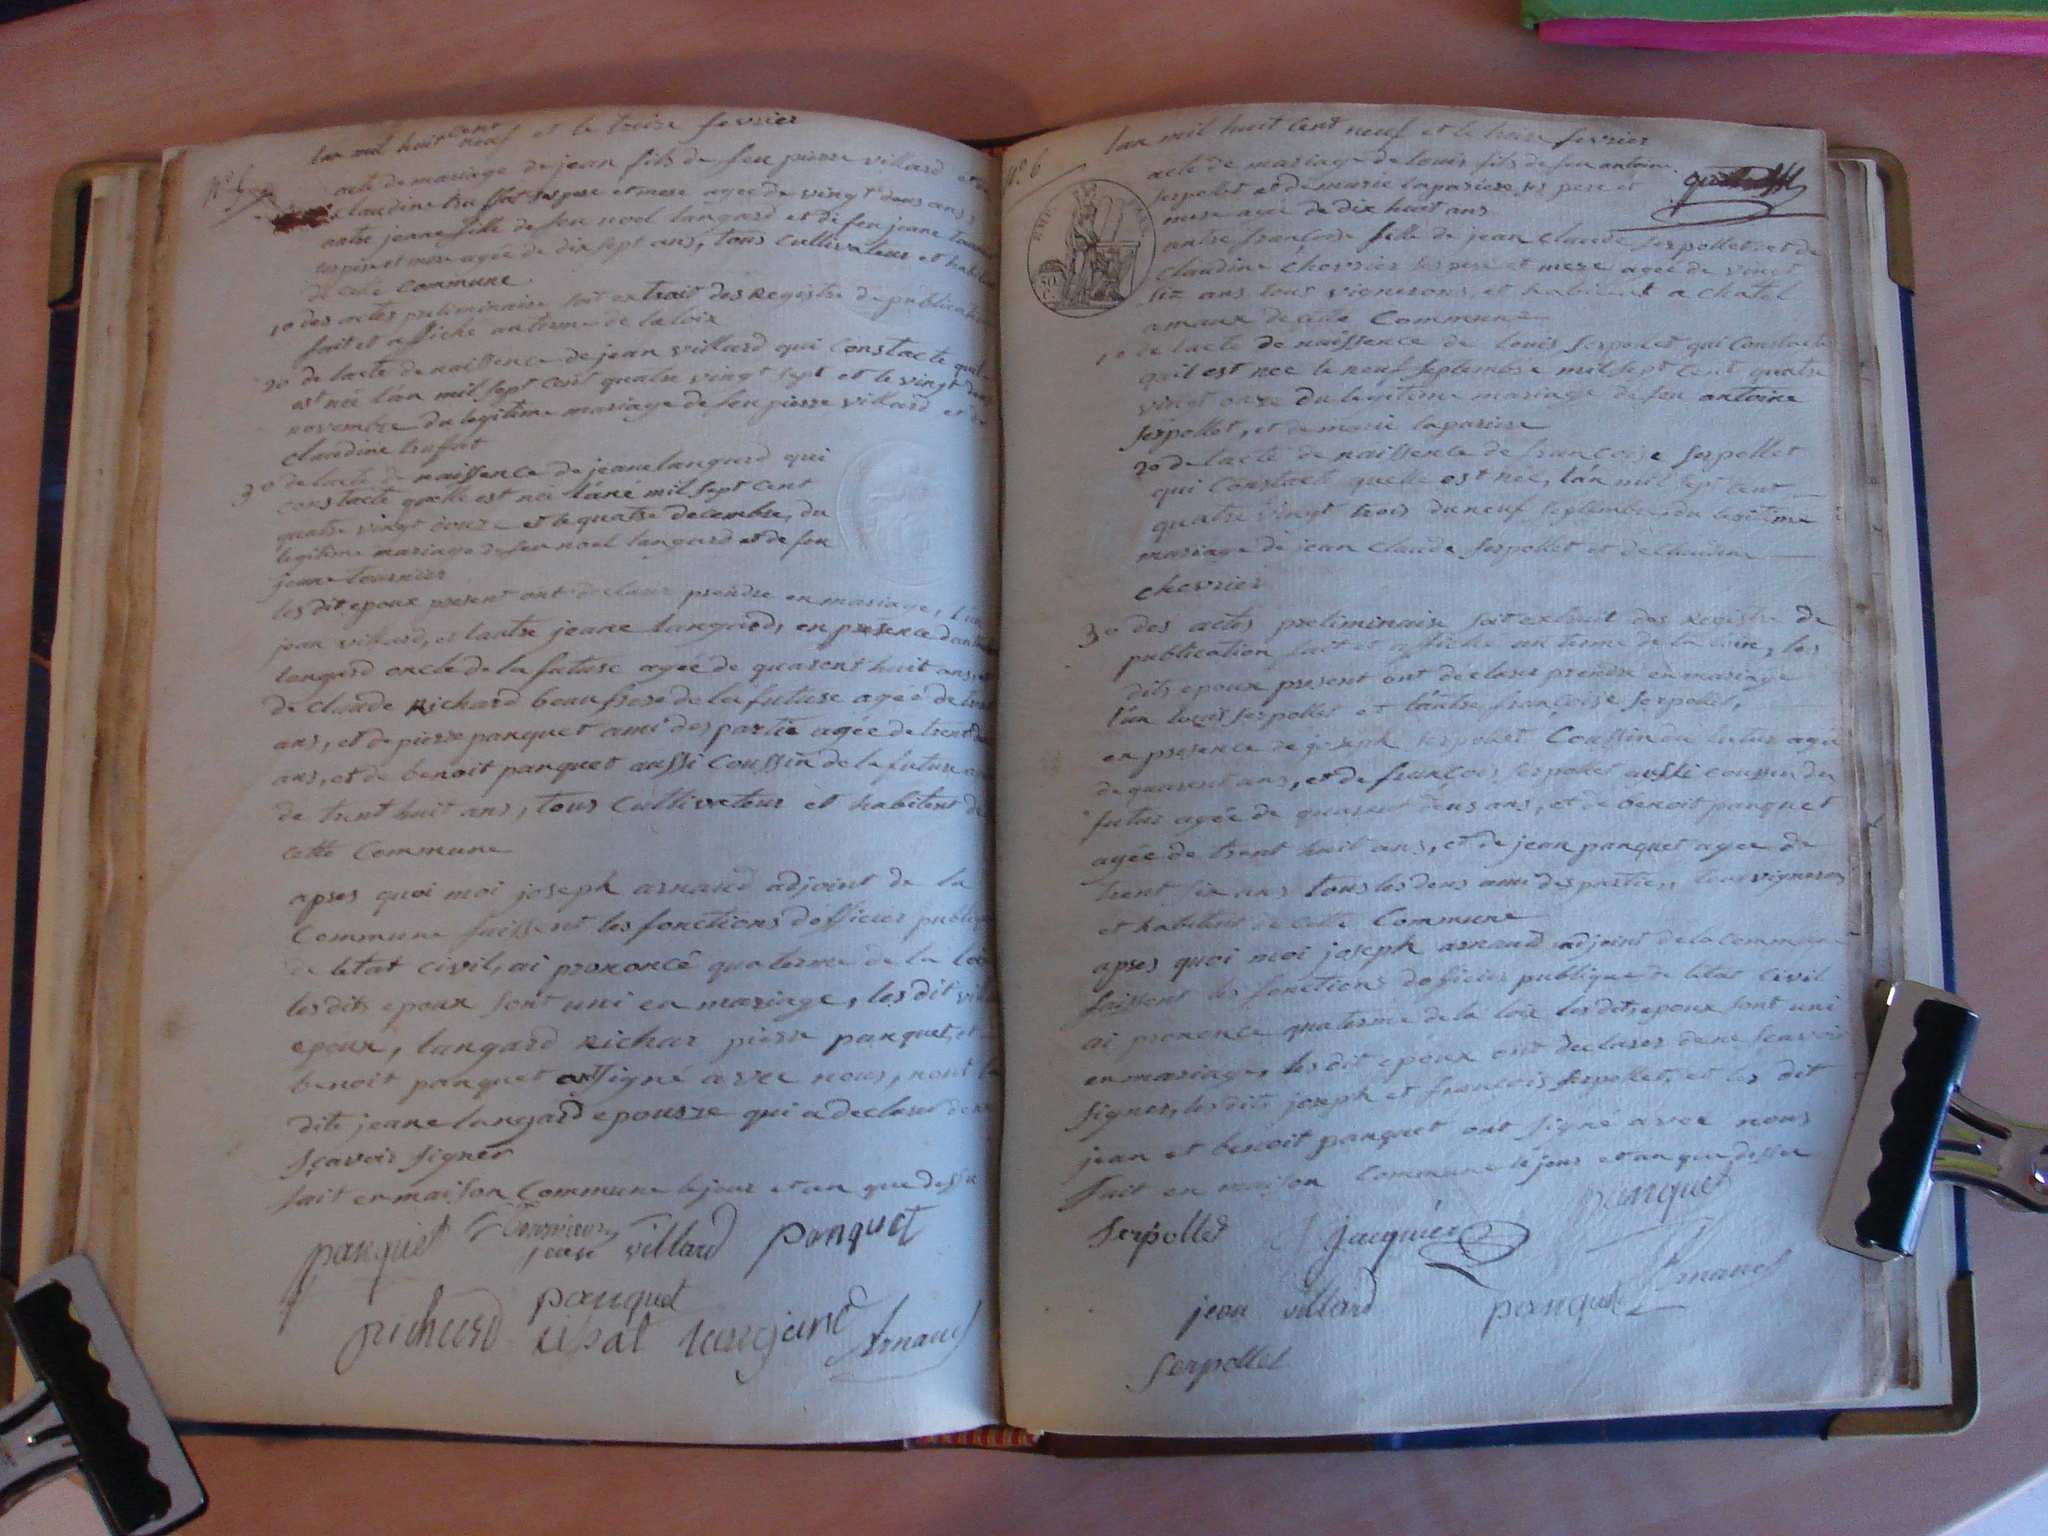 Lan mil huit cent neuf et le treize fevrier
N° 5
acte de mariage de jean fils de feu pierre villard et de
claudine truffat ses pere et mere agée de vingt deus ans,
autre jeane fille de feu noel langard et de feu jeane
ses pere et mere agée de dix sept ans, tous cultivateur et
de cette commune
1o des actes preliminaire soit extrait des Registre de publication
fait et affiché au terme de la loix
2o de lacte de naissence de jean villard qui constacte
est née l'an mil sept cent quatre vingt sept et le vingt
novembre du legitime mariage de feu pierre villard et de
claudine truffat
3o de lacte de naissence de jeane langard qui
constacte quelle est née l'ané mil sept cent
quatre vingt douze et le quatre decembre, du
legitime mariage de feu noel langard et de feu
jeane tournier
les dit epoux present ont declarer prendre en mariage, l'un
jean villard, et lautre jeane langard, en presence
langard oncle de la future agée de quarent huit ans,
de claude Richard beaufrere de la future agée de
ans, et de pierre panquet ami des partie agée de trent
ans, et de benoit panquet aussi coussin de la future
de trent huit ans, tous cultivateur et habitent de
cette commune
apres quoi moi joseph arnaud adjoint de la
commune faissent les fonctions dofficier publique
de letat civil, ai prononcé quaterme de la loix
les dits epoux sont uni en mariage, les dit
epoux, langard Richar pierre panquet, et
benoit panquet signé avec nous, nont la
dite jeane langard epousze qui a declaré de ne
sçavoir signer
fait en maison commune le jour et an que dessu
panquet jean villard panquet
panquet
richard langard Arnaud
N° 6
Lan mil huit cent neuf et le treize fevrier
acte de mariage de louis fils de feu antoine
serpollet et de marie lapariere ses pere et
mere agée de dix huit ans
autre françoise fille de jean claude serpollet et de
claudine chevrier ses pere et mere agée de vingt
six ans tous vignerons et habitent a chatel
amaux de cette commune
1o de lacte de naissence de louis serpollet qui constacte
quil est nee le neuf septembre mil sept cent quatre
vingt onze du legitime mariage de feu antoine
serpollet, et de marie lapariere
2o de lacte de naissence de françoise serpollet
qui constacte quelle est née, lan mil sept cent
quatre vingt trois du neuf septembre, du legitime
mariage de jean claude serpollet et de claudine
chevrier
3o des actes preliminaire soit extrait des Registre de
publication fait et affiché au terme de la loix, les
dits epoux present ont declarer prendre en mariage
l'un louis serpollet et l'autre françoise serpollet,
en presence de joseph serpollet coussin du futur agée
de quarent ans, et de françois serpollet aussi coussin du
futur agée de quarent deus ans, et de benoit panquet
agée de trent huit ans, et de jean panquet agee de
trent six ans tous les deus ami des partie, tous vigneron
et habitent de cette commune
apres quoi moi joseph arnaud adjoint de la commune
faissent les fonctions dofficier publique de letat civil
ai prononce quaterme de la loix les dits epoux sont uni
en mariage, les dit epoux ont declarer de ne sçavoir
signer, les dits joseph et françois serpollet, et les dit
jean et benoit panquet ont signé avec nous
fait en maison commune le jour et an que dessu
serpollet jacquier panquet
jean villard panquet Arnaud
serpollet